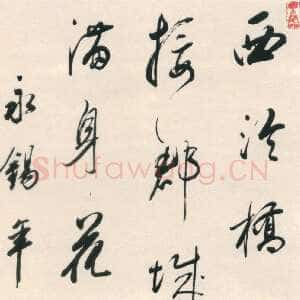 西泠橋
接郡城
滿身花
永錫年
Shufawang.CN